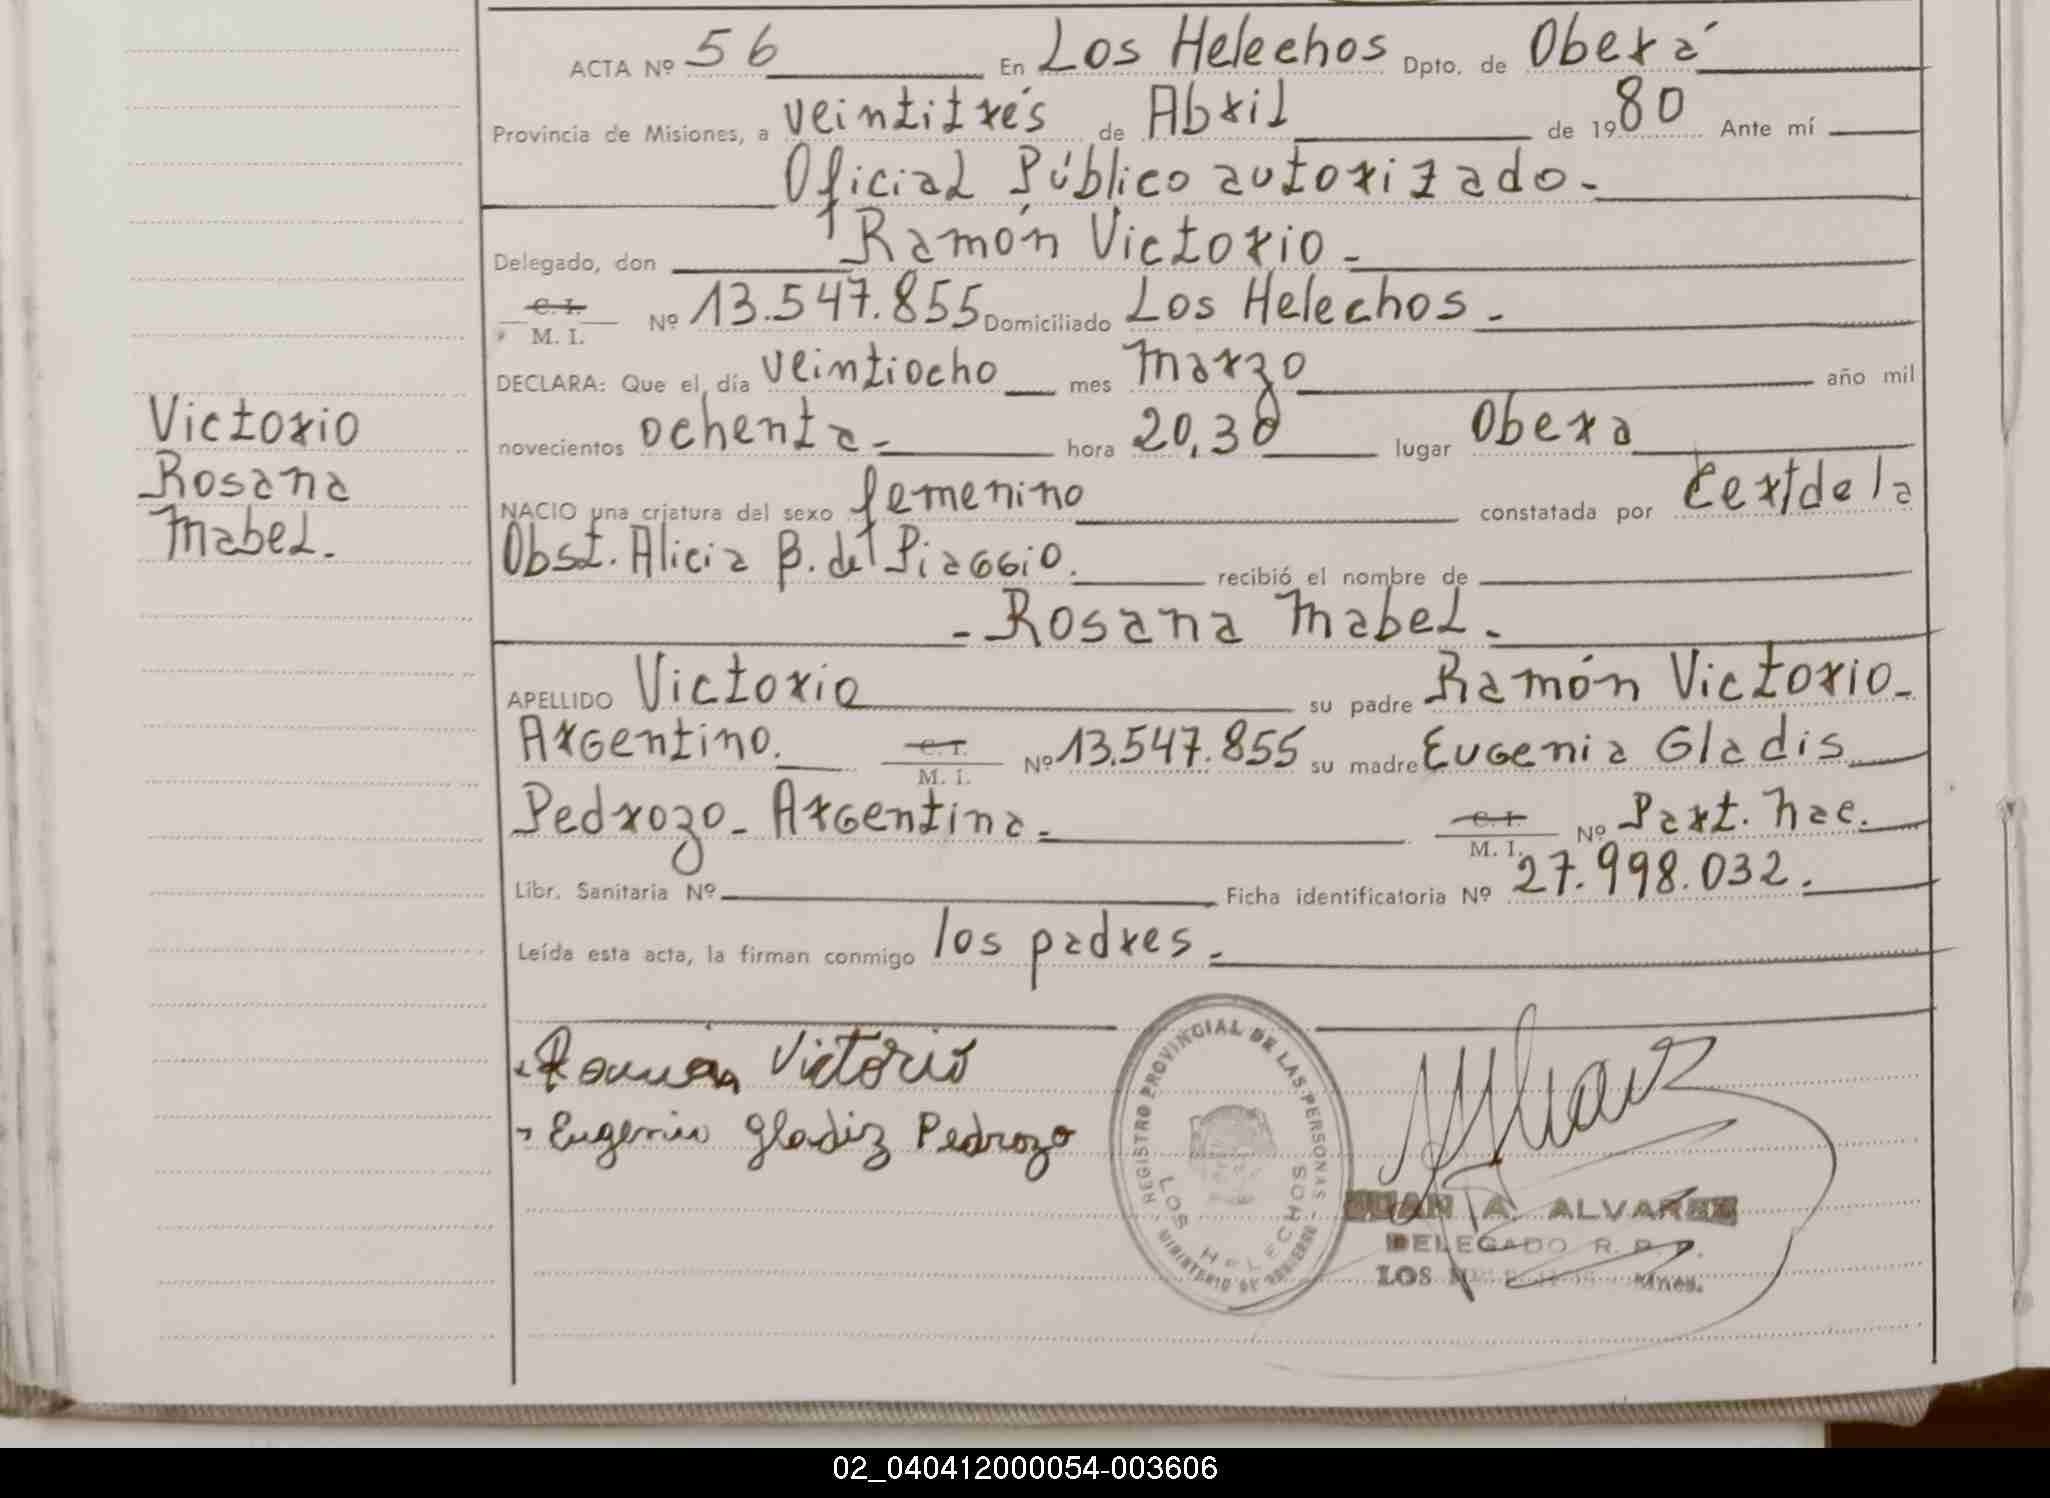 ACTA Nº 56 En Los Helechos Dpto. de Oberá
Provincia de Misiones, a veintitrés de Abril de 1980 Ante mí
Oficial Público autorizado.-
Delegado, don Ramón Victorio.-
C. I. / M. I. Nº 13.547.855 Domiciliado Los Helechos.-
DECLARA: Que el día veintiocho mes Marzo año mil
novecientos ochenta.- hora 20,30 lugar Obera
NACIO una criatura del sexo femenino constatada por Cert de la
Obst. Alicia B. de Piaggio. recibió el nombre de
- Rosana Mabel.-
Victorio
Rosana
Mabel.
APELLIDO Victorio su padre Ramón Victorio.-
Argentino. C. I. / M. I. Nº 13.547.855 su madre Eugenia Gladis
Pedrozo- Argentina.- C. I. / M. I. Nº Part. Nac.
Libr. Sanitaria Nº Ficha identificatoria Nº 27.998.032.
Leída esta acta, la firman conmigo los padres.-
Ramón Victorio
Eugenia Gladiz Pedrozo
REGISTRO PROVINCIAL DE LAS PERSONAS
LOS HELECHOS
MINISTERIO DE GOBIERNO
JUAN A. ALVAREZ
DELEGADO R. P. P.
LOS HELECHOS Mnes.
02_040412000054-003606